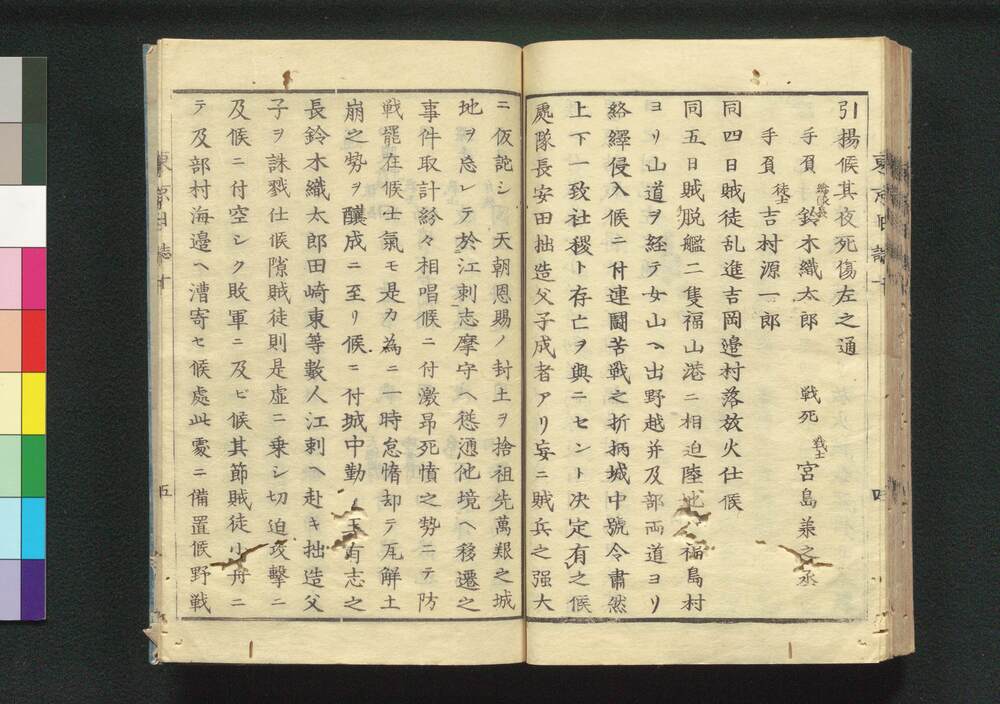 引揚候其夜死傷左之通
手負 鈴木織太郎 戦死 戦士 宮島兼之丞
手負 徒士 吉村源一郎
同四日賊徒乱進吉岡邉村落放火仕候
同五日賊脱艦二隻福山港ニ相迫陸地ハ福島村
ヨリ山道ヲ経テ女山ヘ出野越并及部両道ヨリ
絡繹侵入候ニ付連闘苦戦之折柄城中號令肅然
上下一致社稷ト存亡ヲ與ニセント决定有之候
處隊長安田拙造父子成者アリ妄ニ賊兵之强大
ニ仮託シ 天朝恩賜ノ封土ヲ捨祖先萬艱之城
地ヲ忘レテ於江刺志摩守ヘ慫慂他境ヘ移遷之
事件取計紛々相唱候ニ付激昂死憤之勢ニテ防
戦罷在候士氣モ是カ為ニ一時怠惰却テ瓦解土
崩之勢ヲ釀成ニ至リ候ニ付城中勤 王有志之
長鈴木織太郎田崎東等數人江刺ヘ赴キ拙造父
子ヲ誅戮仕候隙賊徒則是虚ニ乗シ切迫攻擊ニ
及候ニ付空シク敗軍ニ及ビ候其節賊徒小舟ニ
テ及部村海邉ヘ漕寄セ候處此處ニ備置候野戦
東京日誌十
四
東京日誌十
五